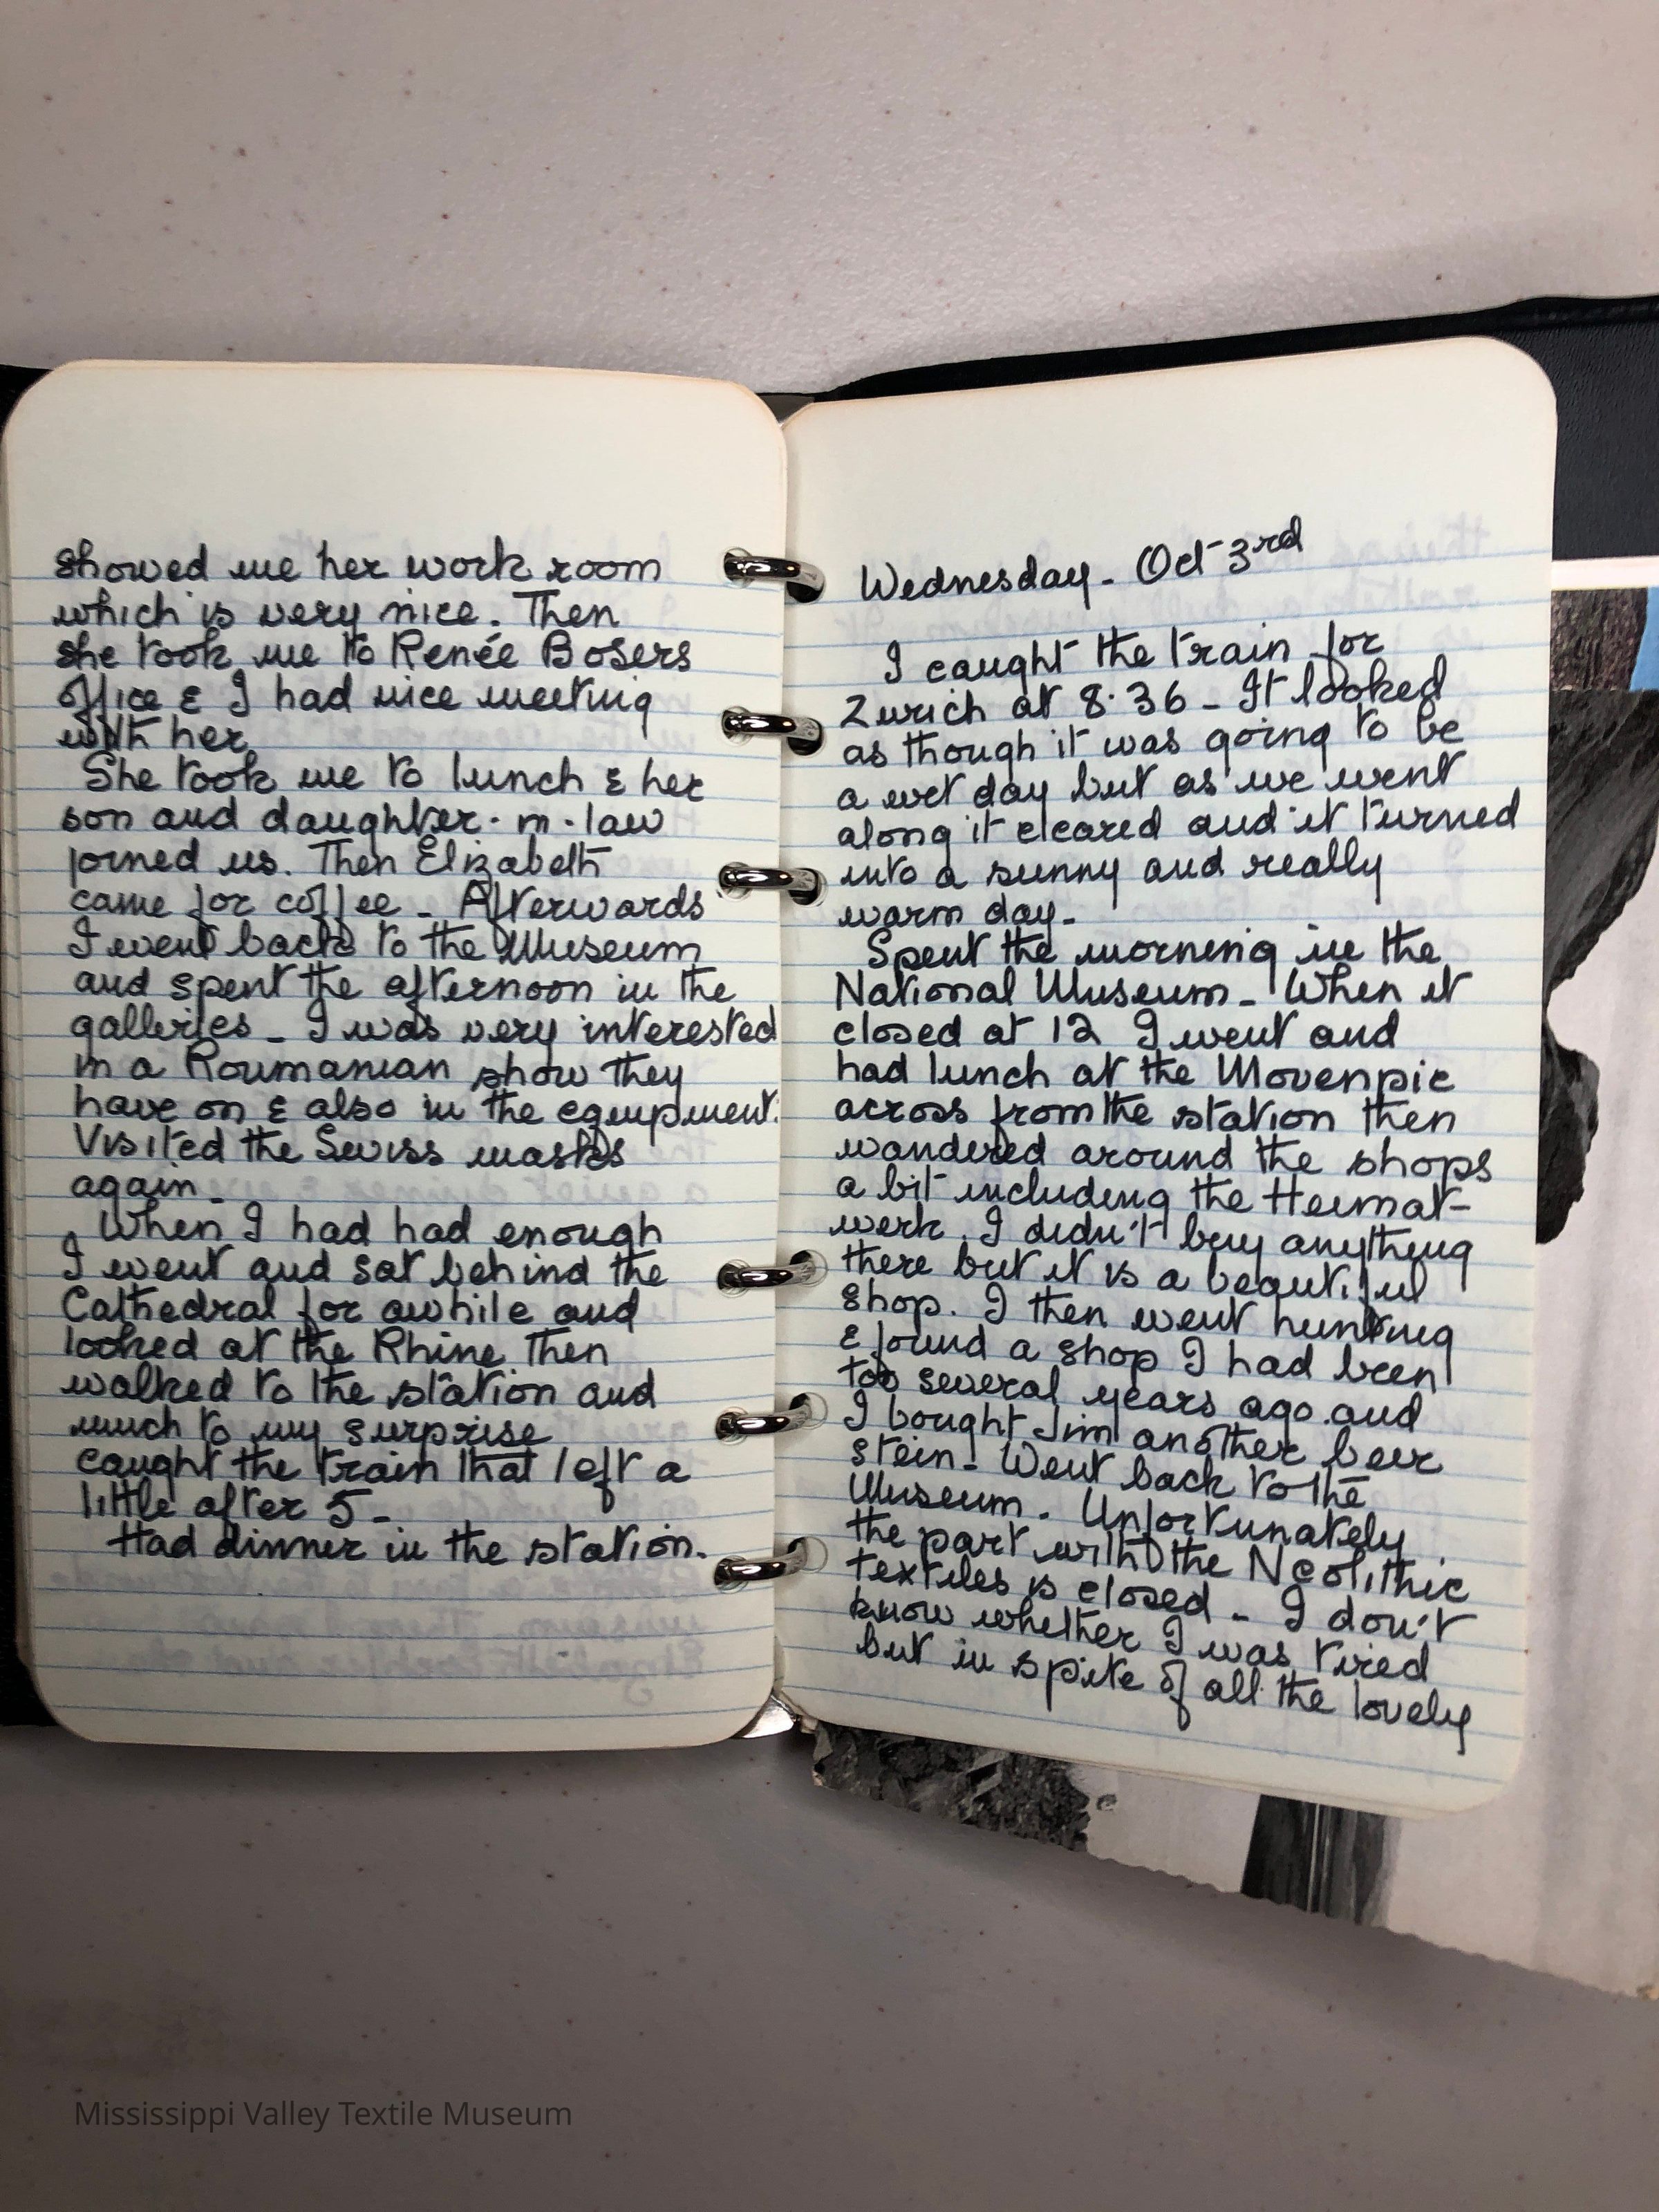 showed me her work room
which is very nice. Then
she took me to Renée Bosers
office & I had nice meeting
with her
She took me to lunch & her
son and daughter-in-law
joined us. Then Elizabeth
came for coffee - Afterwards
I went back to the Museum
and spent the afternoon in the
galleries - I was very interested
in a Roumanian show they
have on & also in the equipment.
Visited the Swiss masks
again -
When I had had enough
I went and sat behind the
Cathedral for awhile and
looked at the Rhine. Then
walked to the station and
much to my surprise
caught the train that left a
little after 5 -
Had dinner in the station.
Wednesday - Oct 3rd
I caught the train for
Zurich at 8.36 - It looked
as though it was going to be
a wet day but as we went
along it cleared and it turned
into a sunny and really
warm day -
Spent the morning in the
National Museum - When it
closed at 12 I went and
had lunch at the Movenpic
across from the station then
wandered around the shops
a bit including the Heimat-
werk. I didn't buy anything
there but it is a beautiful
shop. I then went hunting
& found a shop I had been
too several years ago and
I bought Jim another beer
stein - Went back to the
Museum. Unfortunately
the part with the Neolithic
textiles is closed - I don't
know whether I was tired
but in spite of all the lovely
Mississippi Valley Textile Museum